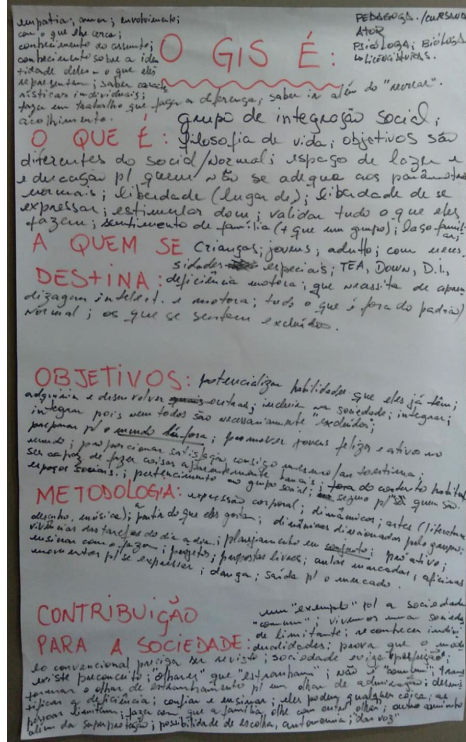 empatia; amor; envolvimento;
com o que lhe cerca;
conhecimento do assunto;
conhecimento sobre a iden
tidade deles – o que eles
representam; saber carac
rísticas individuais;
fazer um trabalho que faça a diferença; saber ir além do "normal".
acolhimento.
PEDAGOGA /CURSANDO
ATOR
PSICÓLOGA; BIÓLOGA
LICENCIATURAS.
O GIS É:
grupo de integração social;
O QUE É: filosofia de vida; objetivos são
diferentes do social/normal; espaço de lazer e
educação p/ quem não se adequa aos parâmetros
normais; liberdade (lugar de); liberdade de se
expressar; estimular dom; validar tudo o que eles
fazem; sentimento de família (+ que um grupo); laço famili
A QUEM SE crianças; jovens, adulto; com neces
DESTINA: sidades especiais; TEA, DOWN, D.I.,
deficiência motora; que necessita de apren
dizagem intelect. e motora; tudo o que é fora do padrão/
normal; os que se sentem excluídos.
OBJETIVOS: potencializar habilidades que eles já têm;
adquirir e desenvolver outras; incluir na sociedade; integrar;
integrar pois nem todos são necessariamente excluídos;
preparar p/ o mundo lá fora; promover jovens felizes e ativo no
mundo; proporcionar satisfação consigo mesmo/autoestima;
ser capaz de fazer coisas aparentemente banais; fora do contexto habitual
espaços sociais; pertencimento ao grupo social; seguro p/ ser quem são.
METODOLOGIA: expressão corporal; dinâmicas; artes (literatura
desenho, música); partir do que eles gostam; dinâmicas direcionadas pelo grupo;
vivências das tarefas do dia a dia; planejamento em conjunto; pró ativo;
ensinar como fazem; projetos; propostas livres; aulas marcadas, oficinas
momentos p/ se expressar; dança; saída p/ o mercado.
CONTRIBUIÇÃO um "exemplo" p/ a sociedade
"comum"; vivemos numa socieda
PARA A SOCIEDADE: de limitante; reconhecer indivi
dualidades; prova que o mode
lo convencional precisa ser revisto; sociedade exige "perfeição";
existe preconceito; "olhares" que "estranham"; não é "comum"; trans
formar o olhar de estranhamento p/ um olhar de admiração; desmis
tificar a deficiência; confiar e ensinar; eles podem qualquer coisa; as
pessoas limitam; fazer com que a família olhe com outro olhar; outro caminho
além da superproteção; possibilidade de escolha, autonomia; "dar voz"